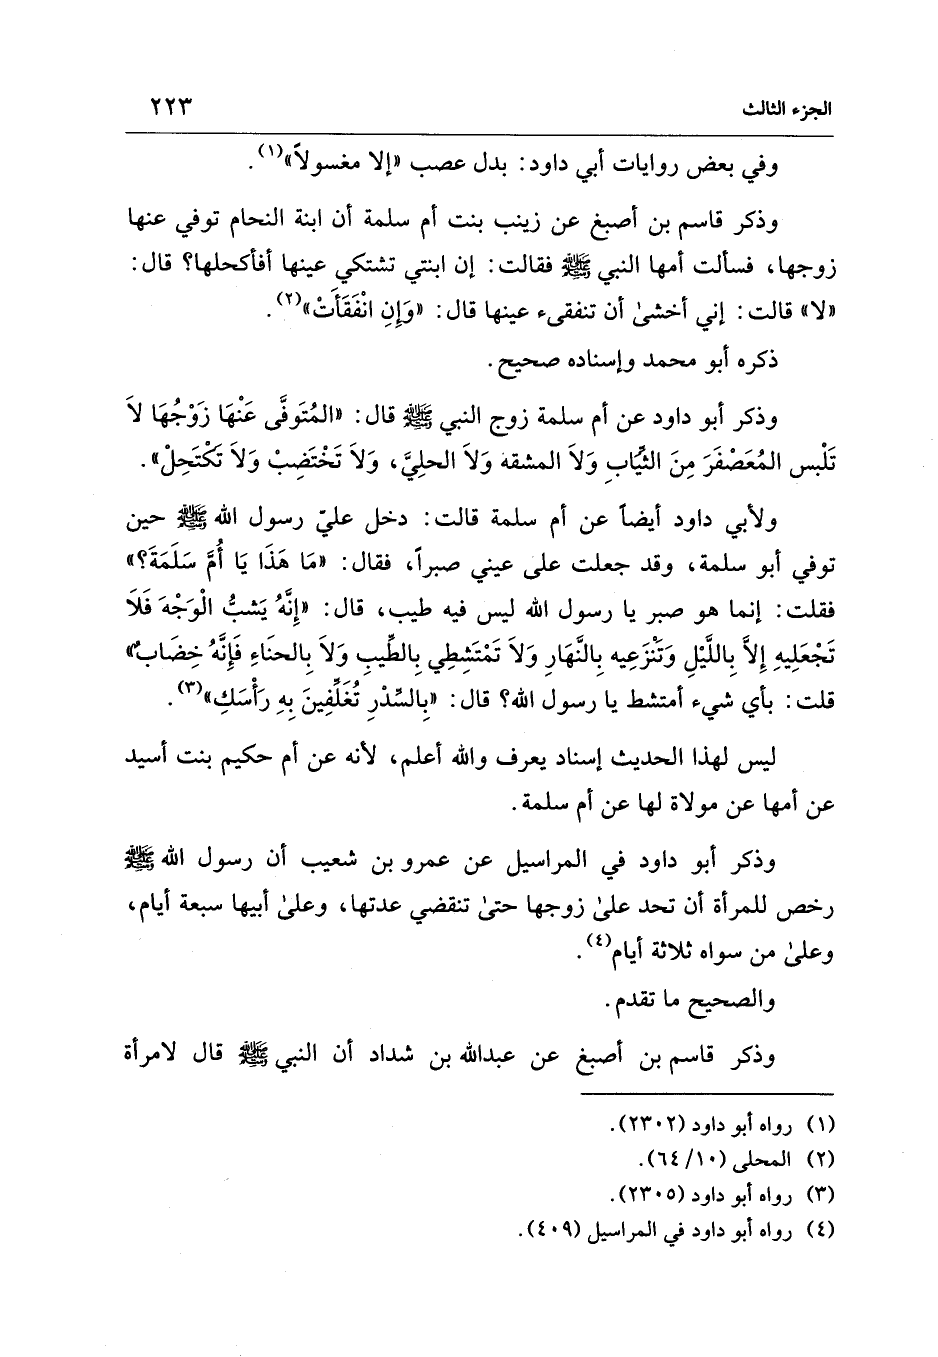 الجزء الثالث ٢٢٣
وفي بعض روايات أبي داود: بدل عصب «إلا مغسولاً»(١).
وذكر قاسم بن أصبغ عن زينب بنت أم سلمة أن ابنة النحام توفي عنها
زوجها، فسألت أمها النبي ﷺ فقالت: إن ابنتي تشتكي عينها أفأكحلها؟ قال:
«لا» قالت: إني أخشىٰ أن تنفقىء عينها قال: «وَإِنِ انْفَقَأَتْ»(٢).
ذكره أبو محمد وإسناده صحيح.
وذكر أبو داود عن أم سلمة زوج النبي ﷺ قال: «المُتَوفَّى عَنْهَا زَوْجُهَا لاَ
تَلْبس المُعَصْفَرَ مِنَ الثِّيَابِ وَلاَ المشقه وَلاَ الحليَّ، وَلاَ تَخْتَضِبْ وَلاَ تَكْتَحِلْ».
ولأبي داود أيضاً عن أم سلمة قالت: دخل عليّ رسول الله ﷺ حين
توفي أبو سلمة، وقد جعلت على عيني صبراً، فقال: «مَا هَذَا يَا أُمَّ سَلَمَةَ؟»
فقلت: إنما هو صبر يا رسول الله ليس فيه طيب، قال: «إِنَّهُ يَشبُّ الْوَجْهَ فَلَا
تَجْعَلِيهِ إِلاَّ بِاللَّيْلِ وَتَنْزَعِيه بِالنَّهَارِ وَلاَ تَمْتَشِطِي بِالطِّيبِ وَلاَ بِالحنَاءِ فَإِنَّهُ خِضَابٌ»
قلت: بأي شيء أمتشط يا رسول الله؟ قال: «بِالسِّدْرِ تُغَلِّفِينَ بِهِ رَأْسَكِ»(٣).
ليس لهذا الحديث إسناد يعرف والله أعلم، لأنه عن أم حكيم بنت أسيد
عن أمها عن مولاة لها عن أم سلمة.
وذكر أبو داود في المراسيل عن عمرو بن شعيب أن رسول الله ﷺ
رخص للمرأة أن تحد علىٰ زوجها حتىٰ تنقضي عدتها، وعلىٰ أبيها سبعة أيام،
وعلىٰ من سواه ثلاثة أيام(٤).
والصحيح ما تقدم.
وذكر قاسم بن أصبغ عن عبدالله بن شداد أن النبي ﷺ قال لامرأة
(١) رواه أبو داود (٢٣٠٢).
(٢) المحلى (١٠/ ٦٤).
(٣) رواه أبو داود (٢٣٠٥).
(٤) رواه أبو داود في المراسيل (٤٠٩).